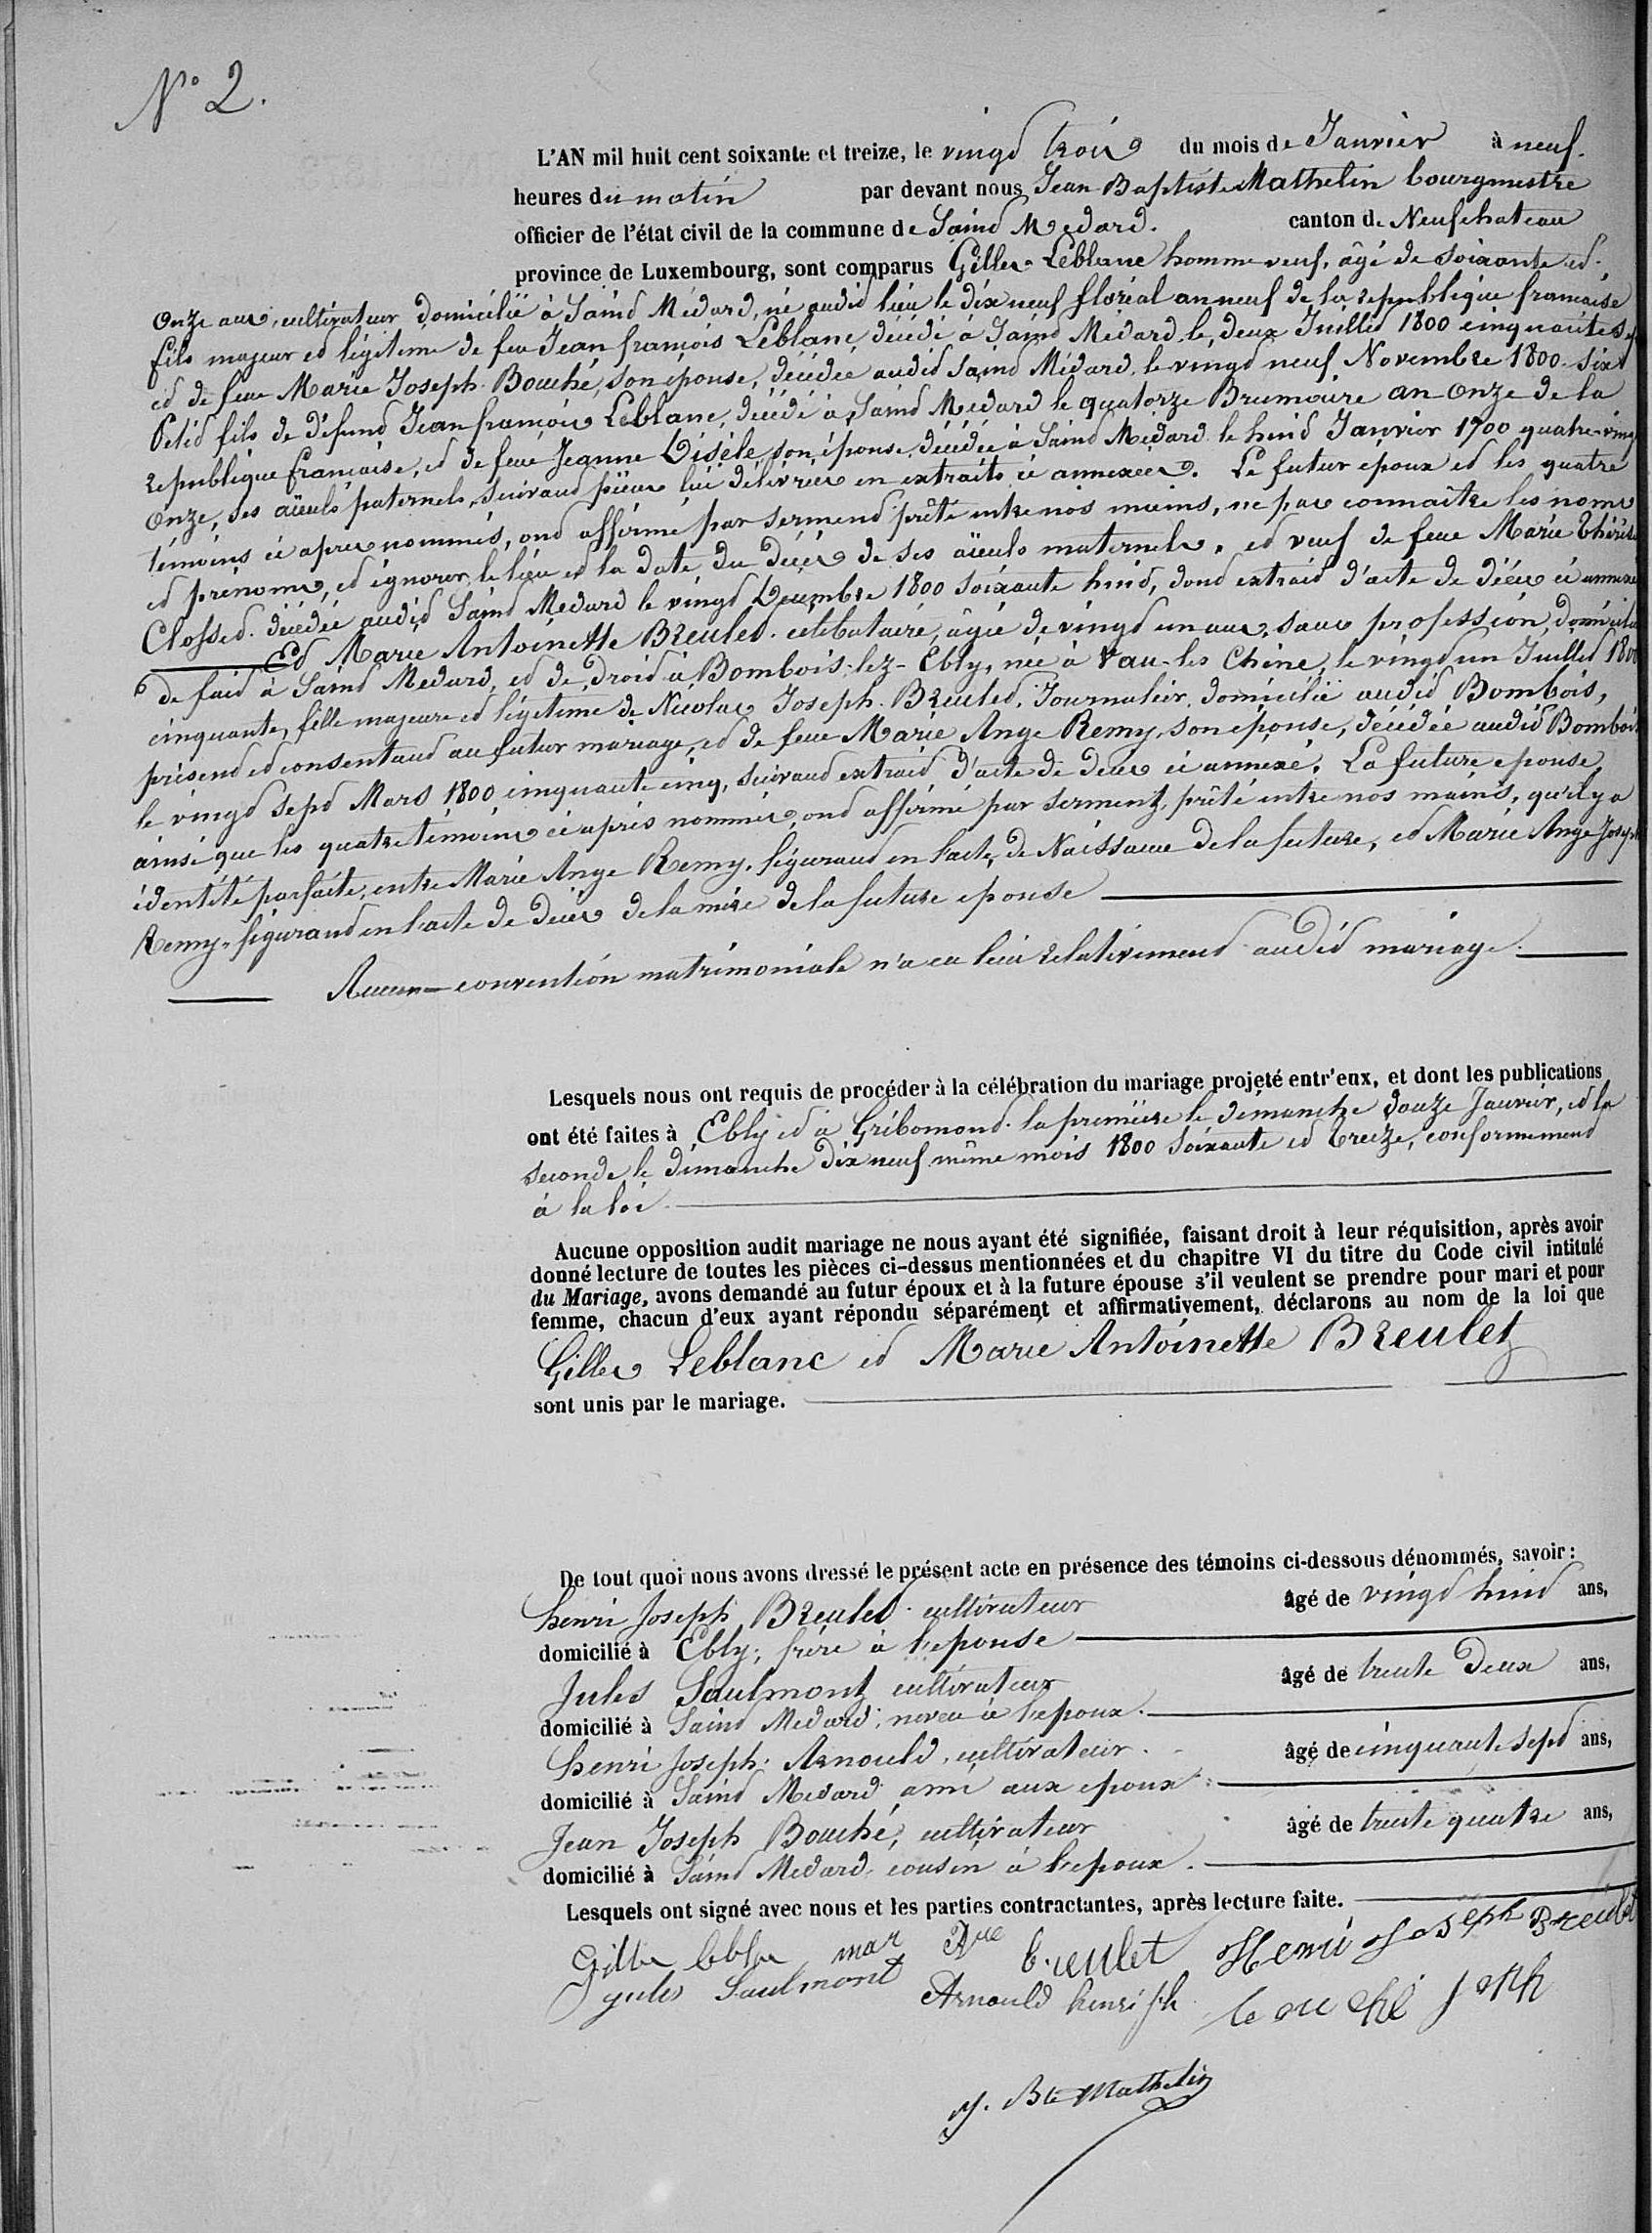 N° 2.
L'AN mil huit cent soixante et treize, le vingt trois du mois de Janvier à neuf
heures du matin par devant nous Jean Baptiste Mathelin bourgmestre
officier de l'état civil de la commune de Saint Médard. canton de Neufchateau
province de Luxembourg, sont comparus Gilles Leblanc homme veuf, âgé de soixante et
Onze ans, cultivateur domicilié à Saint Médard, né audit lieu le dix neuf floréal an neuf de la republique française
fils majeur et légitime de feu Jean françois Leblanc, décédé à Saint Médard le deux Juillet 1800 cinquante
et de feue Marie Joseph Bouché, son épouse, décédée audit Saint Médard, le vingt neuf Novembre 1800
Petit fils de défunt Jean françois Leblanc, décédé à Saint Médard le quatorze Brumaire an Onze de la
republique française, et de feue Jeanne son épouse décédée à Saint Médard le huit Janvier 1700 quatre-vingt
Onze, ses aïeuls paternels, suivant pièces lui délivrées en extraits ci annexées. Le futur epoux et les quatre
témoins ci apres nommés, ont affirmé par serment prêté entre nos mains, ne pas connaître les noms
et prénoms, et ignorer le lieu et la date du décès de ses aïeuls maternels. et veuf de feue Marie Thérèse
Closset décédée audit Saint Médard le vingt Décembre 1800 soixante huit, dont extrait d'acte de décès ci annexé
Et Marie Antoinette Breulet célibataire, âgée de vingt un ans, sans profession, domiciliée
de fait à Saint Médard, et de droit à Bombois-lez-Ebly, née à Vau-les Chêne, le vingt un Juillet 1800
cinquante, fille majeure et légitime de Nicolas Joseph Breulet, Journalier, domicilié audit Bombois,
présent et consentant au futur mariage, et de feue Marie Ange Remy, son épouse, décédée audit Bombois
le vingt sept Mars 1800 cinquante cinq, suivant extrait d'acte de décès ci annexé. La future epouse,
ainsi que les quatre témoins ci après nommés, ont affirmé par serment prêté entre nos mains, qu'il y a
identité parfaite, entre Marie Ange Remy, figurant en l'acte de Naissance de la future, et Marie Ange Joseph
Remy figurant en l'acte de décès de la mère de la future epouse
Aucune convention matrimoniale n'a eu lieu relativement audit mariage.
Lesquels nous ont requis de procéder à la célébration du mariage projeté entr'eux, et dont les publications
ont été faites à Ebly et à Gribomont la première le dimanche douze Janvier, et la
seconde le dimanche dix neuf même mois 1800 soixante et treize, conformement
à la loi
Aucune opposition audit mariage ne nous ayant été signifiée, faisant droit à leur réquisition, après avoir
donné lecture de toutes les pièces ci-dessus mentionnées et du chapitre VI du titre du Code civil intitulé
du Mariage, avons demandé au futur époux et à la future épouse s'il veulent se prendre pour mari et pour
femme, chacun d'eux ayant répondu séparément et affirmativement, déclarons au nom de la loi que
Gilles Leblanc et Marie Antoinette Breulet
sont unis par le mariage.
De tout quoi nous avons dressé le présent acte en présence des témoins ci-dessous dénommés, savoir :
Henri Joseph Breulet cultivateur âgé de vingt huit ans,
domicilié à Ebly, frère à l'epouse
Jules Saulmont cultivateur âgé de trente deux ans,
domicilié à Saint Médard, neveu à l'epoux.
Henri Joseph Arnould, cultivateur âgé de cinquante sept ans,
domicilié à Saint Médard ami aux epoux
Jean Joseph Bouché, cultivateur âgé de trente quatre ans,
domicilié à Saint Médard cousin à l'epoux.
Lesquels ont signé avec nous et les parties contractantes, après lecture faite.
Gilles mar breulet Henri Joseph Breulet
jules Saulmont Arnould henri jh bouché jsph
J. Bte Mathelin